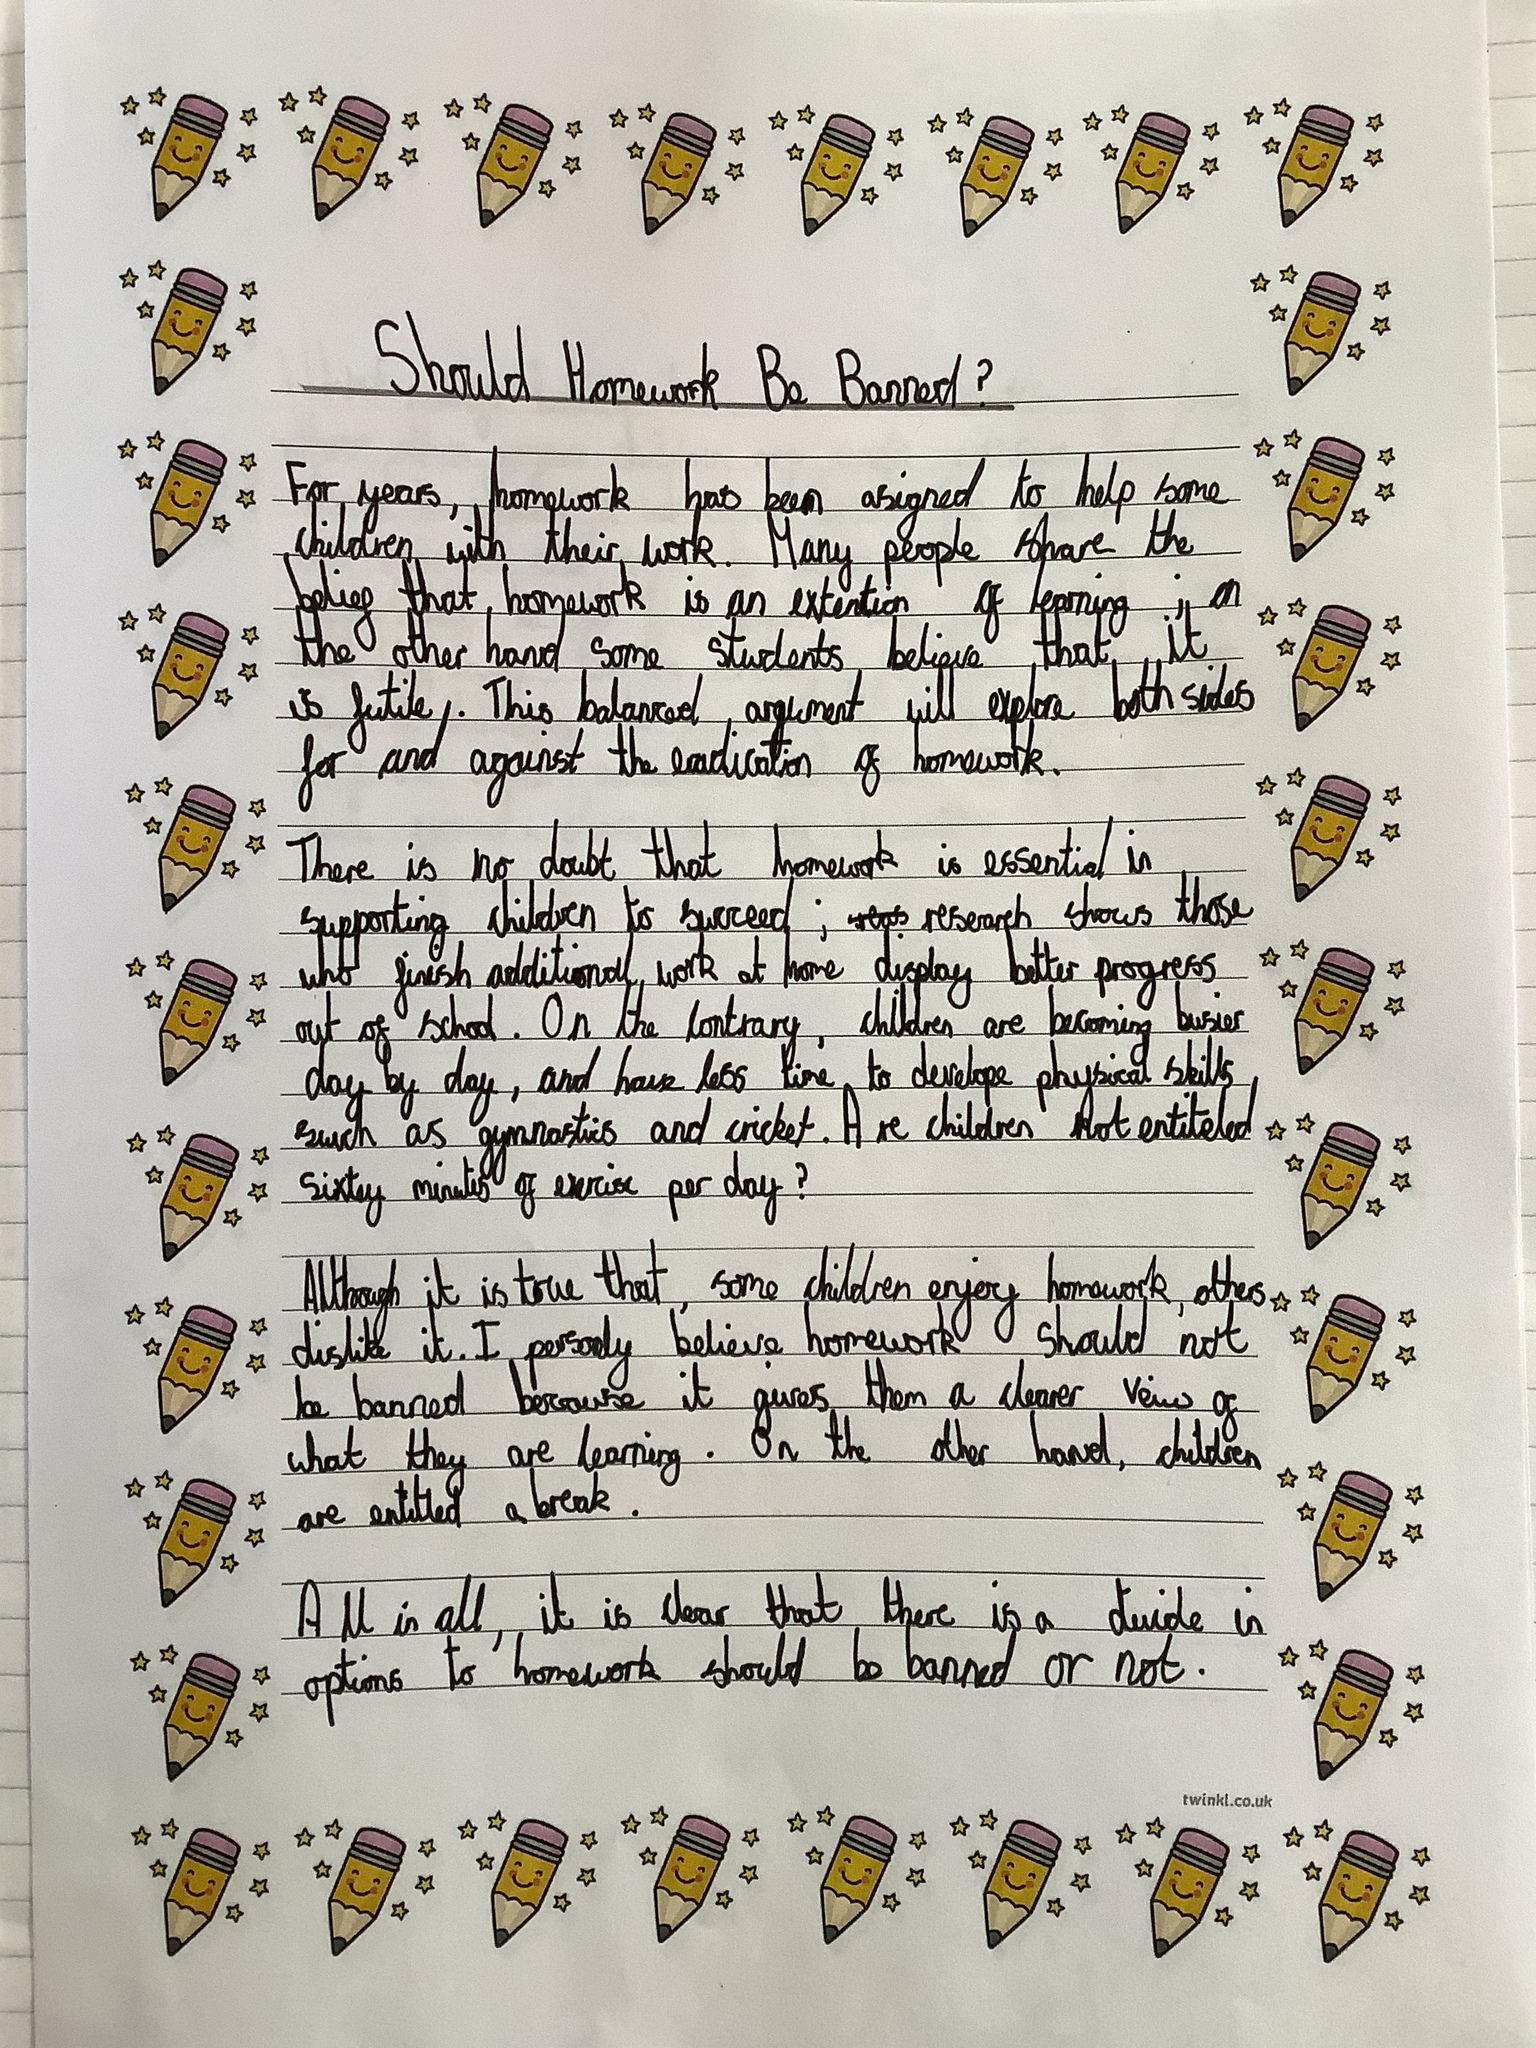 Should Homework Be Banned?
For years, homework has been asigned to help some
children with their work. Many people share the
belief that homework is an extention of learning ; on
the other hand some students believe that it
is futile,. This balanced argument will explore both sides
for and against the eradication of homework.
There is no doubt that homework is essential in
supporting children to succeed ; research shows those
who finish additional work at home display better progress
out of school. On the contrary, children are becoming busier
day by day, and have less time to develope physical skills,
such as gymnastics and cricket. Are children not entiteled
sixtey minutes of exercise per day?
Although it is true that, some children enjory homework, others
dislike it. I personly believe homework should not
be banned because it gives them a clearer veiw of
what they are learning. On the other hand, children
are entitled a break.
All in all, it is clear that there is a divide in
options to homework should be banned or not.
twinkl.co.uk